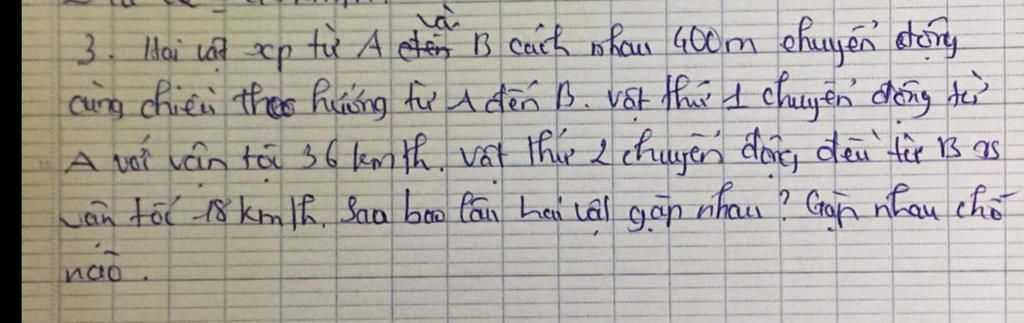 3. Hai vật xp từ A và B cách nhau 400m chuyển động
cùng chiều theo hướng từ A đến B. vật thứ 1 chuyển động từ
A với vận tốc 36 km/h. vật thứ 2 chuyển động đều từ B vs
vận tốc 18 km/h. Sau bao lâu hai vật gặp nhau? Gặp nhau chỗ
nào.